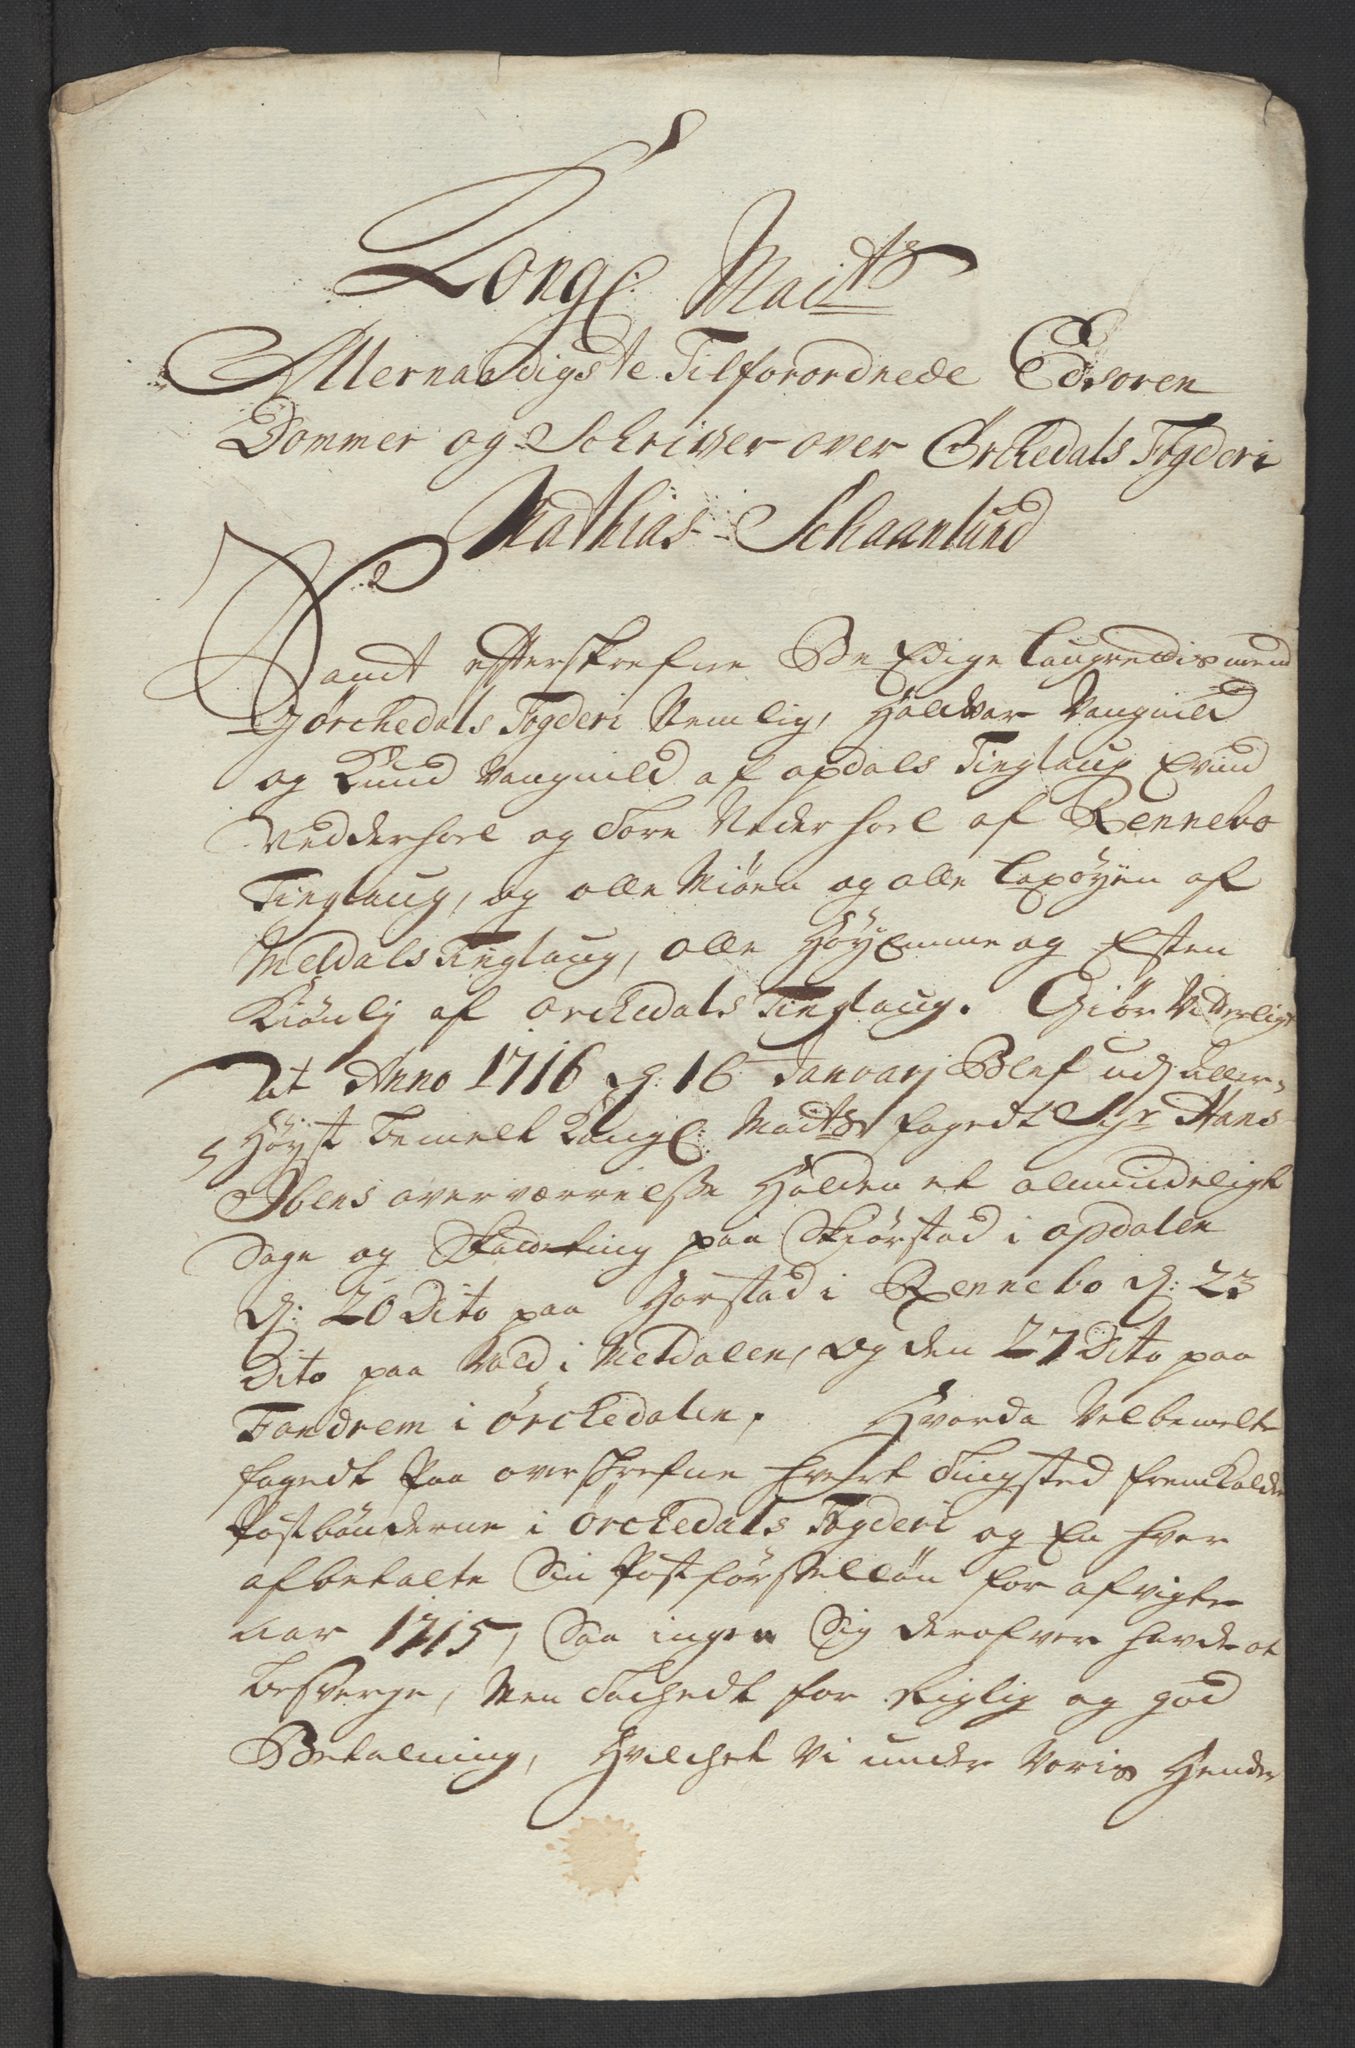 Kongl: Maits
Allernaadigste Tilforordnede Edsvoren
Dommer og Schriver over Ørchedals Fogderi
Mathias Schaanlund
Samt efterskrefne Be Edige Laugrettismend
i Ørchedals Fogderi Nemlig, Haldvar Vangnild
og Knud Vangnild af opdals Tinglaug Evind
Nedderhoel og Tore Nederhoel af Rennebo
Tinglaug, og olle Miøen og olle Lapøyen af
Meldals Tinglaug, olle Høyemme og Esten
Kiønlj af Orchedals Tinglaug. Giør Vitterligt
at Anno 1716 d: 16 Januarj Blef udj aller-
Høyst bemelt Kongl: Maits fogedt Sr Hans
Ibens overværrelse Holden et almindeligt
Sage og Skatteting paa Skiørstad i opdalen
d: 20 Dito paa Horstad i Rennebo d: 23
Dito paa Wold i Meldalen, og den 27 Dito paa
Fandrem i Ørchedalen. Hvorda Velbemelte
fogedt Paa overskrefne hvert Tingsted fremkalder
Postbønderne i Ørchedals Fogderi og En hver
afbetalte Sin Postførselløn for afvigte
aar 1715, Saa ingen Sig derofver hafde at
besverge, Men Tachedt for Rigtig og god
Betalning, Hvilchet Vi under Voris Hender